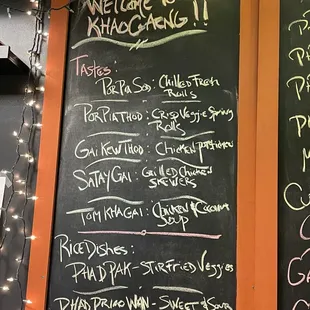 WELCOME TO
KHAO GAENG!!
TASTES:
POR PA SOD: CHILLED FRESH
ROLLS
POR PIA THOD: CRISP VEGGIE SPRING
ROLLS
GAI KEW THOD: CHICKEN
SATAY GAI: GRILLED CHICKEN
SKEWERS
TOM KHA GAI: CHICKEN & COCONUT
SOUP
RICE DISHES:
PHAD PAK - STIR FRIED VEGGIES
PHAD PRIAO WAN - SWEET & SOUR